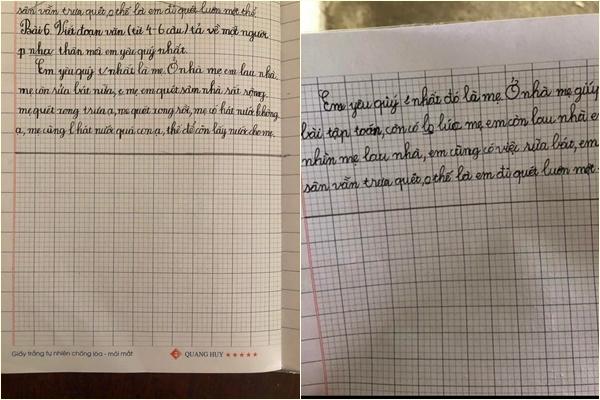 sân vẫn trưa quét, thế là em đi quét luôn một thể
Bài 6. Viết đoạn văn (từ 4-6 câu) tả về một người
nha thân mà em yêu quý nhất.
Em yêu quý nhất là mẹ. Ở nhà mẹ em lau nhà,
mẹ còn rửa bát nữa, mẹ em quét sàn nhà rất rộng.
mẹ quét xong trưa ạ, mẹ quét xong rồi, mẹ có hát nước không
ạ, mẹ cũng hát nước quá cơn ạ, thế để con lấy nước cho mẹ.
Giấy trắng tự nhiên chống lóa - mỏi mắt
QUANG HUY ★★★★★
Em yêu quý nhất đó là mẹ. Ở nhà mẹ giúp
bài tập toán, còn có lúc mẹ em còn lau nhà
nhìn mẹ lau nhà, em cũng có việc rửa bát, em
sân vẫn trưa quét, thế là em đi quét luôn một